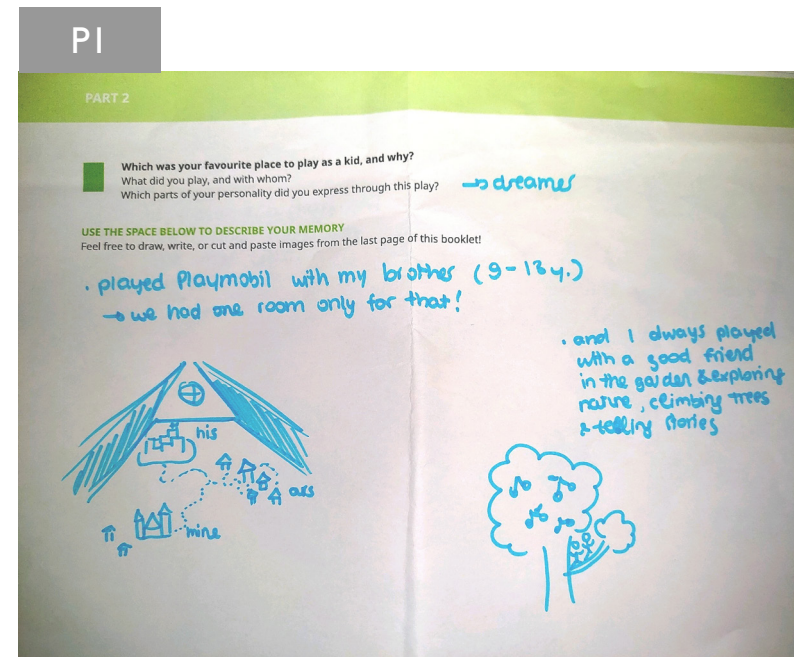 P1
PART 2
Which was your favourite place to play as a kid, and why?
What did you play, and with whom?
Which parts of your personality did you express through this play? → dreamer
USE THE SPACE BELOW TO DESCRIBE YOUR MEMORY
Feel free to draw, write, or cut and paste images from the last page of this booklet!
• played Playmobil with my brother (9-13y.)
→ we had one room only for that!
• and I always played
with a good friend
in the garden & exploring
nature, climbing trees
& telling stories
his
ours
mine